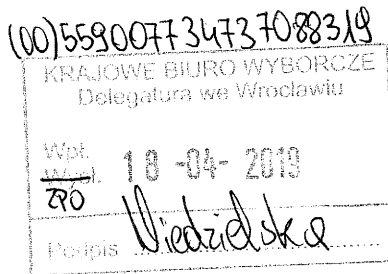 (00)559007734737088319
KRAJOWE BIURO WYBORCZE
Delegatura we Wrocławiu
Wpł.
Wysł. 18 -04- 2019
ZPO
Podpis Niedzielska